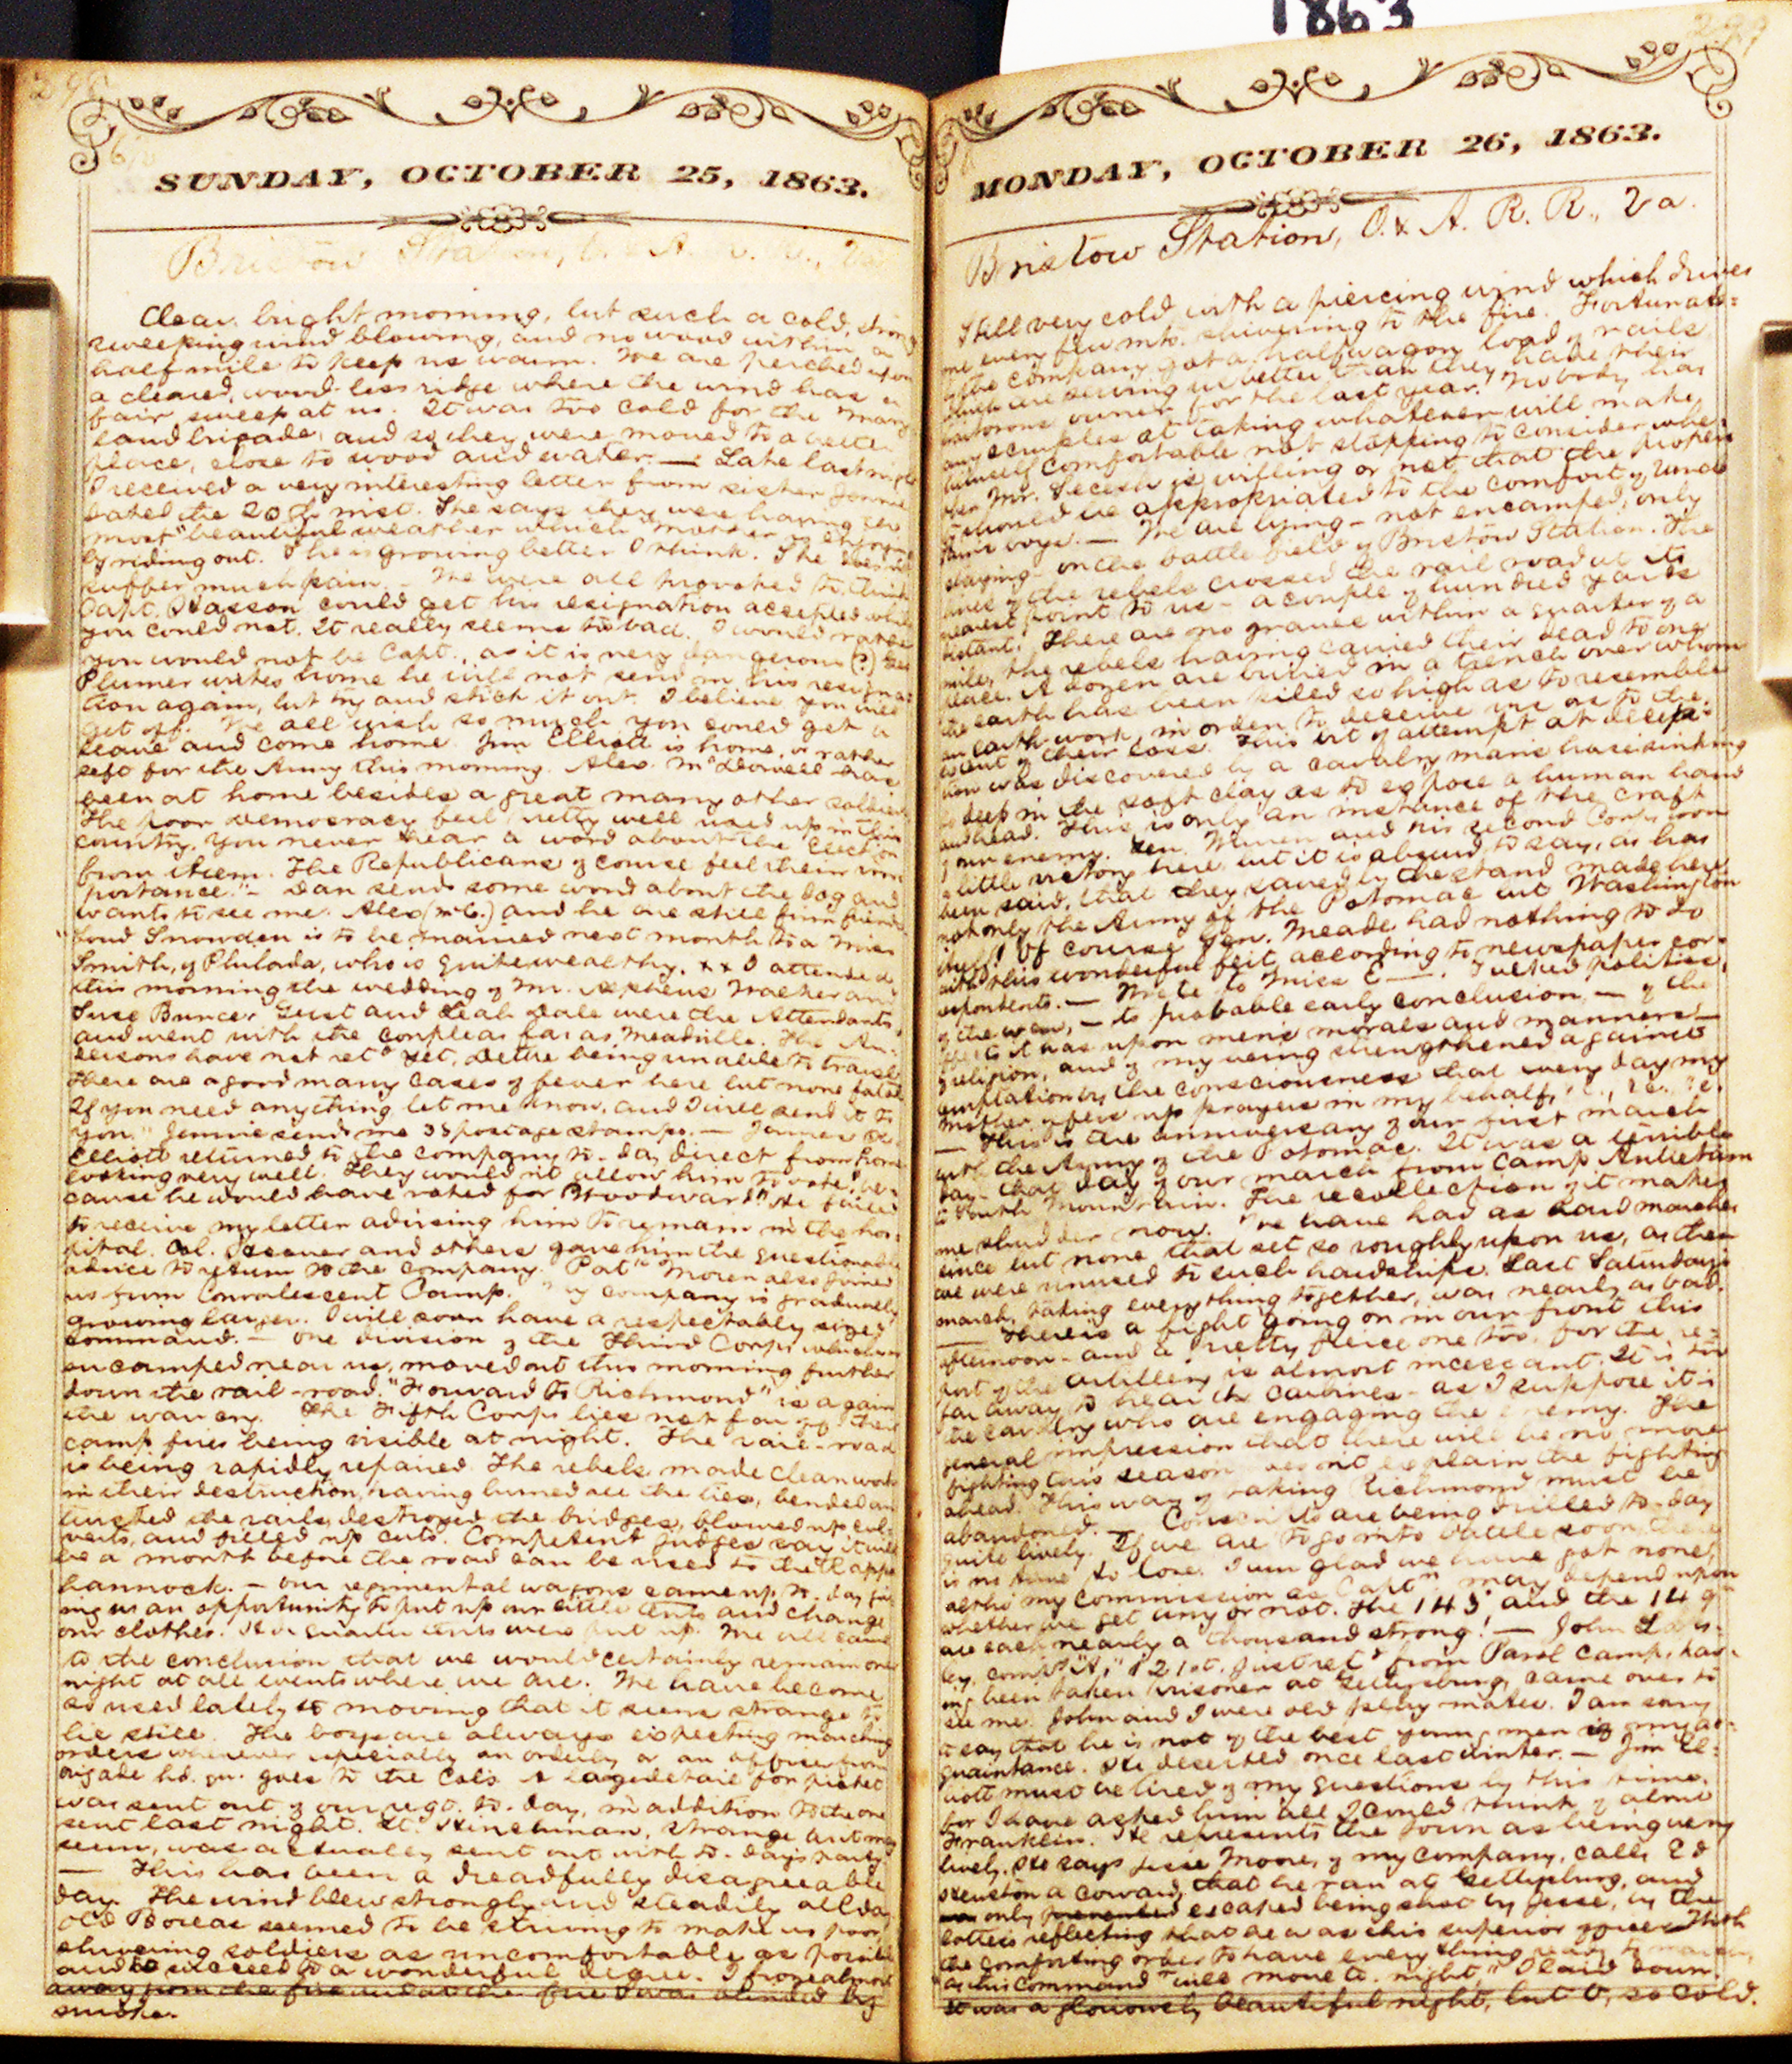 1863
298
SUNDAY, OCTOBER 25, 1863.
Bristow Station, O. & A. R. R., Va.
Clear, bright morning, but such a cold, strong
sweeping wind blowing, and no wood within a
half mile to keep us warm. We are perched upon
a cleared, wood-less ridge where the wind has a
fair sweep at us. It was too cold for the Mary
land brigade, and so they were moved to a better
place, close to wood and water. — Late last night
I received a very interesting letter from sister Jennie
dated the 20th inst. She says they were having the
most "beautiful weather which Mother is enjoying
by riding out. She is growing better I think. She does not
suffer much pain. — We were all provoked to think
Capt. Wasson could get his resignation accepted while
you could not. It really seems too bad. I would rather
you would not be Capt., as it is very dangerous (?)
Plumer writes home he will not send in his resigna-
tion again, but try and stick it out. I believe you will
get off. We all wish so much you could get a
leave and come home. Jim Elliott is home, or rather
left for the Army this morning. Alex. McDowell has
been at home besides a great many other soldiers
The poor Democracy feel pretty well used up in this
country. You never hear a word about the Election
from them. The Republicans of course feel their im-
portance." — Dan sends some word about the dog and
wants to see me. Alex (McC.) and he are still firm friends
"Loud Snowden is to be married next month to a Miss
Smith, of Philada, who is quite wealthy. x x I attended
this morning the wedding of Mr. Stephens and
Suse Bunce. Gust and Leah Dale were the Attendants,
and went with the couple as far as Meadville. The An-
dersons have not retd yet, being unable to travel
There are a good many cases of fever here but none fatal
If you need anything let me know, and I will send it to
you." Jennie sends me 33 postage stamps. — James
Elliott returned to the company to-day direct from home
looking very well. They wouldn't allow him to vote "be-
cause he would have voted for Woodward". He failed
to receive my letter advising him to remain in the hos-
pital. Col. and others gave him the questionable
advice to return to the company. "Pat" Moren also joined
us from Convalescent Camp. My company is gradually
growing larger. I will soon have a respectably sized
command. — One division of the Third Corps which was
encamped near us, moved out this morning further
down the rail-road. "Forward to Richmond" is again
the war cry. The Fifth Corps lies not far off their
camp fires being visible at night. The rail-road
is being rapidly repaired. The rebels made clean work
in their destruction, having burned all the ties, bended and
twisted the rails, destroyed the bridges, blowed up cul-
verts, and filled up cuts. Competent judges say it will
be a month before the road can be used to the Rappa
hannock. — Our regimental wagons came up to-day giv
ing us an opportunity to put up our little tents and change
our clothes. Hd. quarter tents were put up. We all came
to the conclusion that we would certainly remain one
night at all events where we are. We have become
so used lately to moving that it seems strange to
lie still. The boys are always expecting marching
orders whenever especially an orderly or an officer from
brigade hd. qu. goes to the Col's. A large detail for picket
was sent out of our regt. to-day, in addition to the one
sent last night. Lt. Hinchman, strange as it may
seem, was actually sent out with to-day's party.
— This has been a dreadfully disagreeable
day. The wind blew strongly and steadily all day
Old Boreas seemed to be striving to make us poor,
shivering soldiers as uncomfortable as possible
and he succeeded to a wonderful degree. I froze almost
away from the fire and at the fire I was blinded by
smoke.
299
MONDAY, OCTOBER 26, 1863.
Bristow Station, O. & A. R. R., Va.
Still very cold with a piercing wind which drives
me every few mts. shivering to the fire. Fortunate-
ly the company got a half wagon load of rails
which are serving us better than they have their
traitorous owner for the last year. Nobody has
any scruples at taking whatever will make
himself comfortable not stopping to consider whe-
ther Mr. Secesh is willing or not, that the property
should be appropriated to the comfort of Uncle
Sam's boys. — We are lying — not encamped, only
staying — on the battle field of Bristow Station. The
lines of the rebels crossed the rail road at its
nearest point to us — a couple of hundred yards
distant. There are no graves within a quarter of a
mile, the rebels having carried their dead to one
place. A dozen are buried in a trench over whom
the earth has been piled so high as to resemble
an earth work, in order to deceive us as to the
extent of their loss. This bit of attempt at decep-
tion was discovered by a cavalry man's horse sinking
so deep in the soft clay as to expose a human hand
and head. This is only an instance of the craft
of our enemy. Gen. Warren and his Second Corps won
a little victory here but it is absurd to say, as has
been said, that they saved by the stand made here
not only the Army of the Potomac but Washington
itself! Of course Gen. Meade had nothing to do
with this wonderful feit according to newspaper cor-
respondents. — Wrote to Miss E—. Talked politics,
of the war, — its probable early conclusion, — of the
effects it has upon men's morals and manners —
religion, and of my being strengthened against
temptation by the consciousness that every day my
Mother offers up prayers in my behalf, &c., &c. &c.
— This is the anniversary of our first march
with the Army of the Potomac. It was a terrible
day — that day of our march from Camp Antietam
to South Mountain. The recollection of it makes
me shudder now. We have had as hard marches
since but none that set so roughly upon us, as then
we were unused to such hardships. Last Saturday's
march, taking everything together, was nearly as bad.
— There is a fight going on in our front this
afternoon — and a pretty fierce one too, for the re-
port of the artillery is almost incessant. It is too
far away to hear the carbines — as I suppose it is
the cavalry who are engaging the enemy. The
general impression that there will be no more
fighting this season does not explain the fighting
ahead. This way of taking Richmond must be
abandoned. — Conscripts are being drilled to-day
quite lively. If we are to go into battle soon, there
is no time to lose. I am glad we have got none,
altho' my commission as Captn. may depend upon
whether we get any or not. The 143d and the 149th
are each nearly a thousand strong! — John
Comp. "A," 121st. just retd from Parol Camp, hav-
ing been taken prisoner at Gettysburg, came over to
see me. John and I were old play-mates. I am sorry
to say that he is not of the best young men of my ac-
quaintance. He deserted once last winter. — Jim El-
liott must be tired of my questions by this time,
for I have asked him all I could think of about
Franklin. He represents the town as being very
lively. He says Jesse Moore, of my company, calls Ed
Heuston a coward, that he ran at Gettysburg, and
only escaped being shot by Jesse, by the
latter's reflecting that he was his superior officer. With
the comforting order to have everything ready to march,
"as this command will move to-night," I laid down.
It was a gloriously beautiful night, but O, so cold.